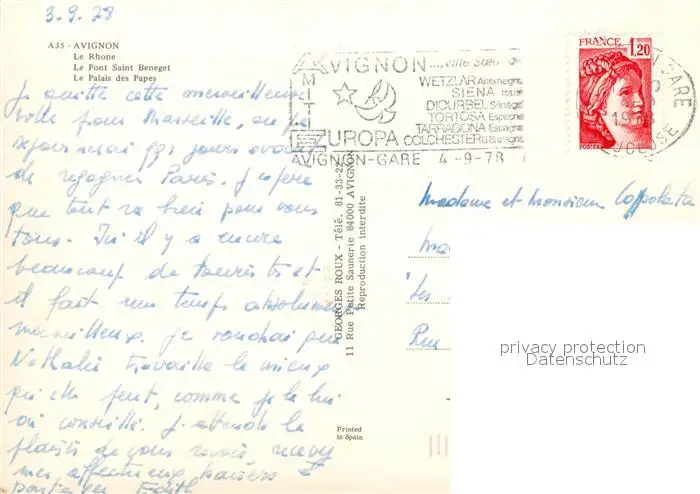 3.9.78
A35 - AVIGNON
Le Rhone
Le Pont Saint Benezet
Le Palais des Papes
Je quitte cette merveilleuse
ville pour Marseille, ou je
séjournerai qqs jours avant
de regagner Paris. J'espère
que tout va bien pour vous
tous. Ici il y a encore
beaucoup de touristes et
il fait un temps absolument
merveilleux. Je voudrai que
Nathalie travaille le mieux
qu'elle peut, comme je le lui
ai conseillé. J'attends le
plaisir de vous revoir, recevez
mes affectueux baisers
Edith
GEORGES ROUX - Télé. 81-33-22
11 Rue Petite Saunerie 84000 AVIGNON
Reproduction interdite
Printed
in Spain
AVIGNON ....ville
AMITIE
WETZLAR Allemagne
SIENA Italie
DIOURBEL Sénégal
TORTOSA Espagne
TARRAGONA Espagne
EUROPA COLCHESTER
AVIGNON-GARE 4-9-78
FRANCE 1,20
POSTES
GARE
1978
VAUCLUSE
Madame et Monsieur
Rue
privacy protection
Datenschutz